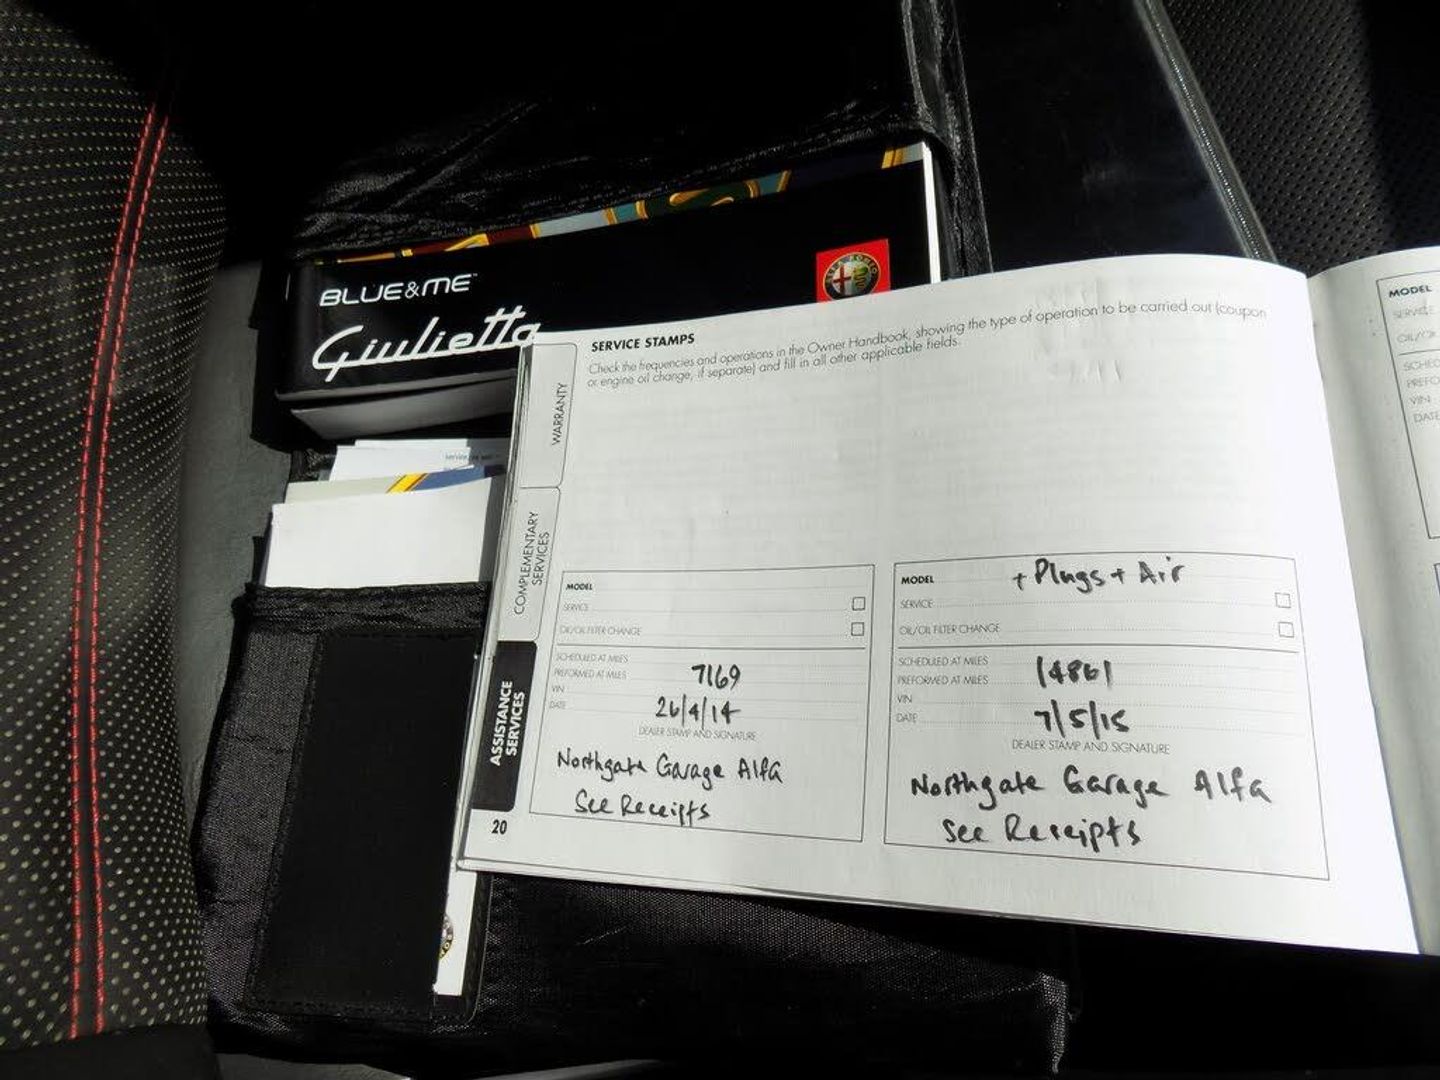 BLUE&ME™
Giulietta
ALFA ROMEO
SERVICE STAMPS
Check the frequencies and operations in the Owner Handbook, showing the type of operation to be carried out (coupon
or engine oil change, if separate) and fill in all other applicable fields.
WARRANTY
COMPLEMENTARY
SERVICES
ASSISTANCE
SERVICES
MODEL
SERVICE
OIL/OIL FILTER CHANGE
SCHEDULED AT MILES
PREFORMED AT MILES 7169
VIN
DATE 26/4/14
DEALER STAMP AND SIGNATURE
Northgate Garage Alfa
See Receipts
20
MODEL + Plugs + Air
SERVICE
OIL/OIL FILTER CHANGE
SCHEDULED AT MILES
PREFORMED AT MILES 14861
VIN
DATE 7/5/15
DEALER STAMP AND SIGNATURE
Northgate Garage Alfa
See Receipts
MODEL
SERVICE
VIN
DATE